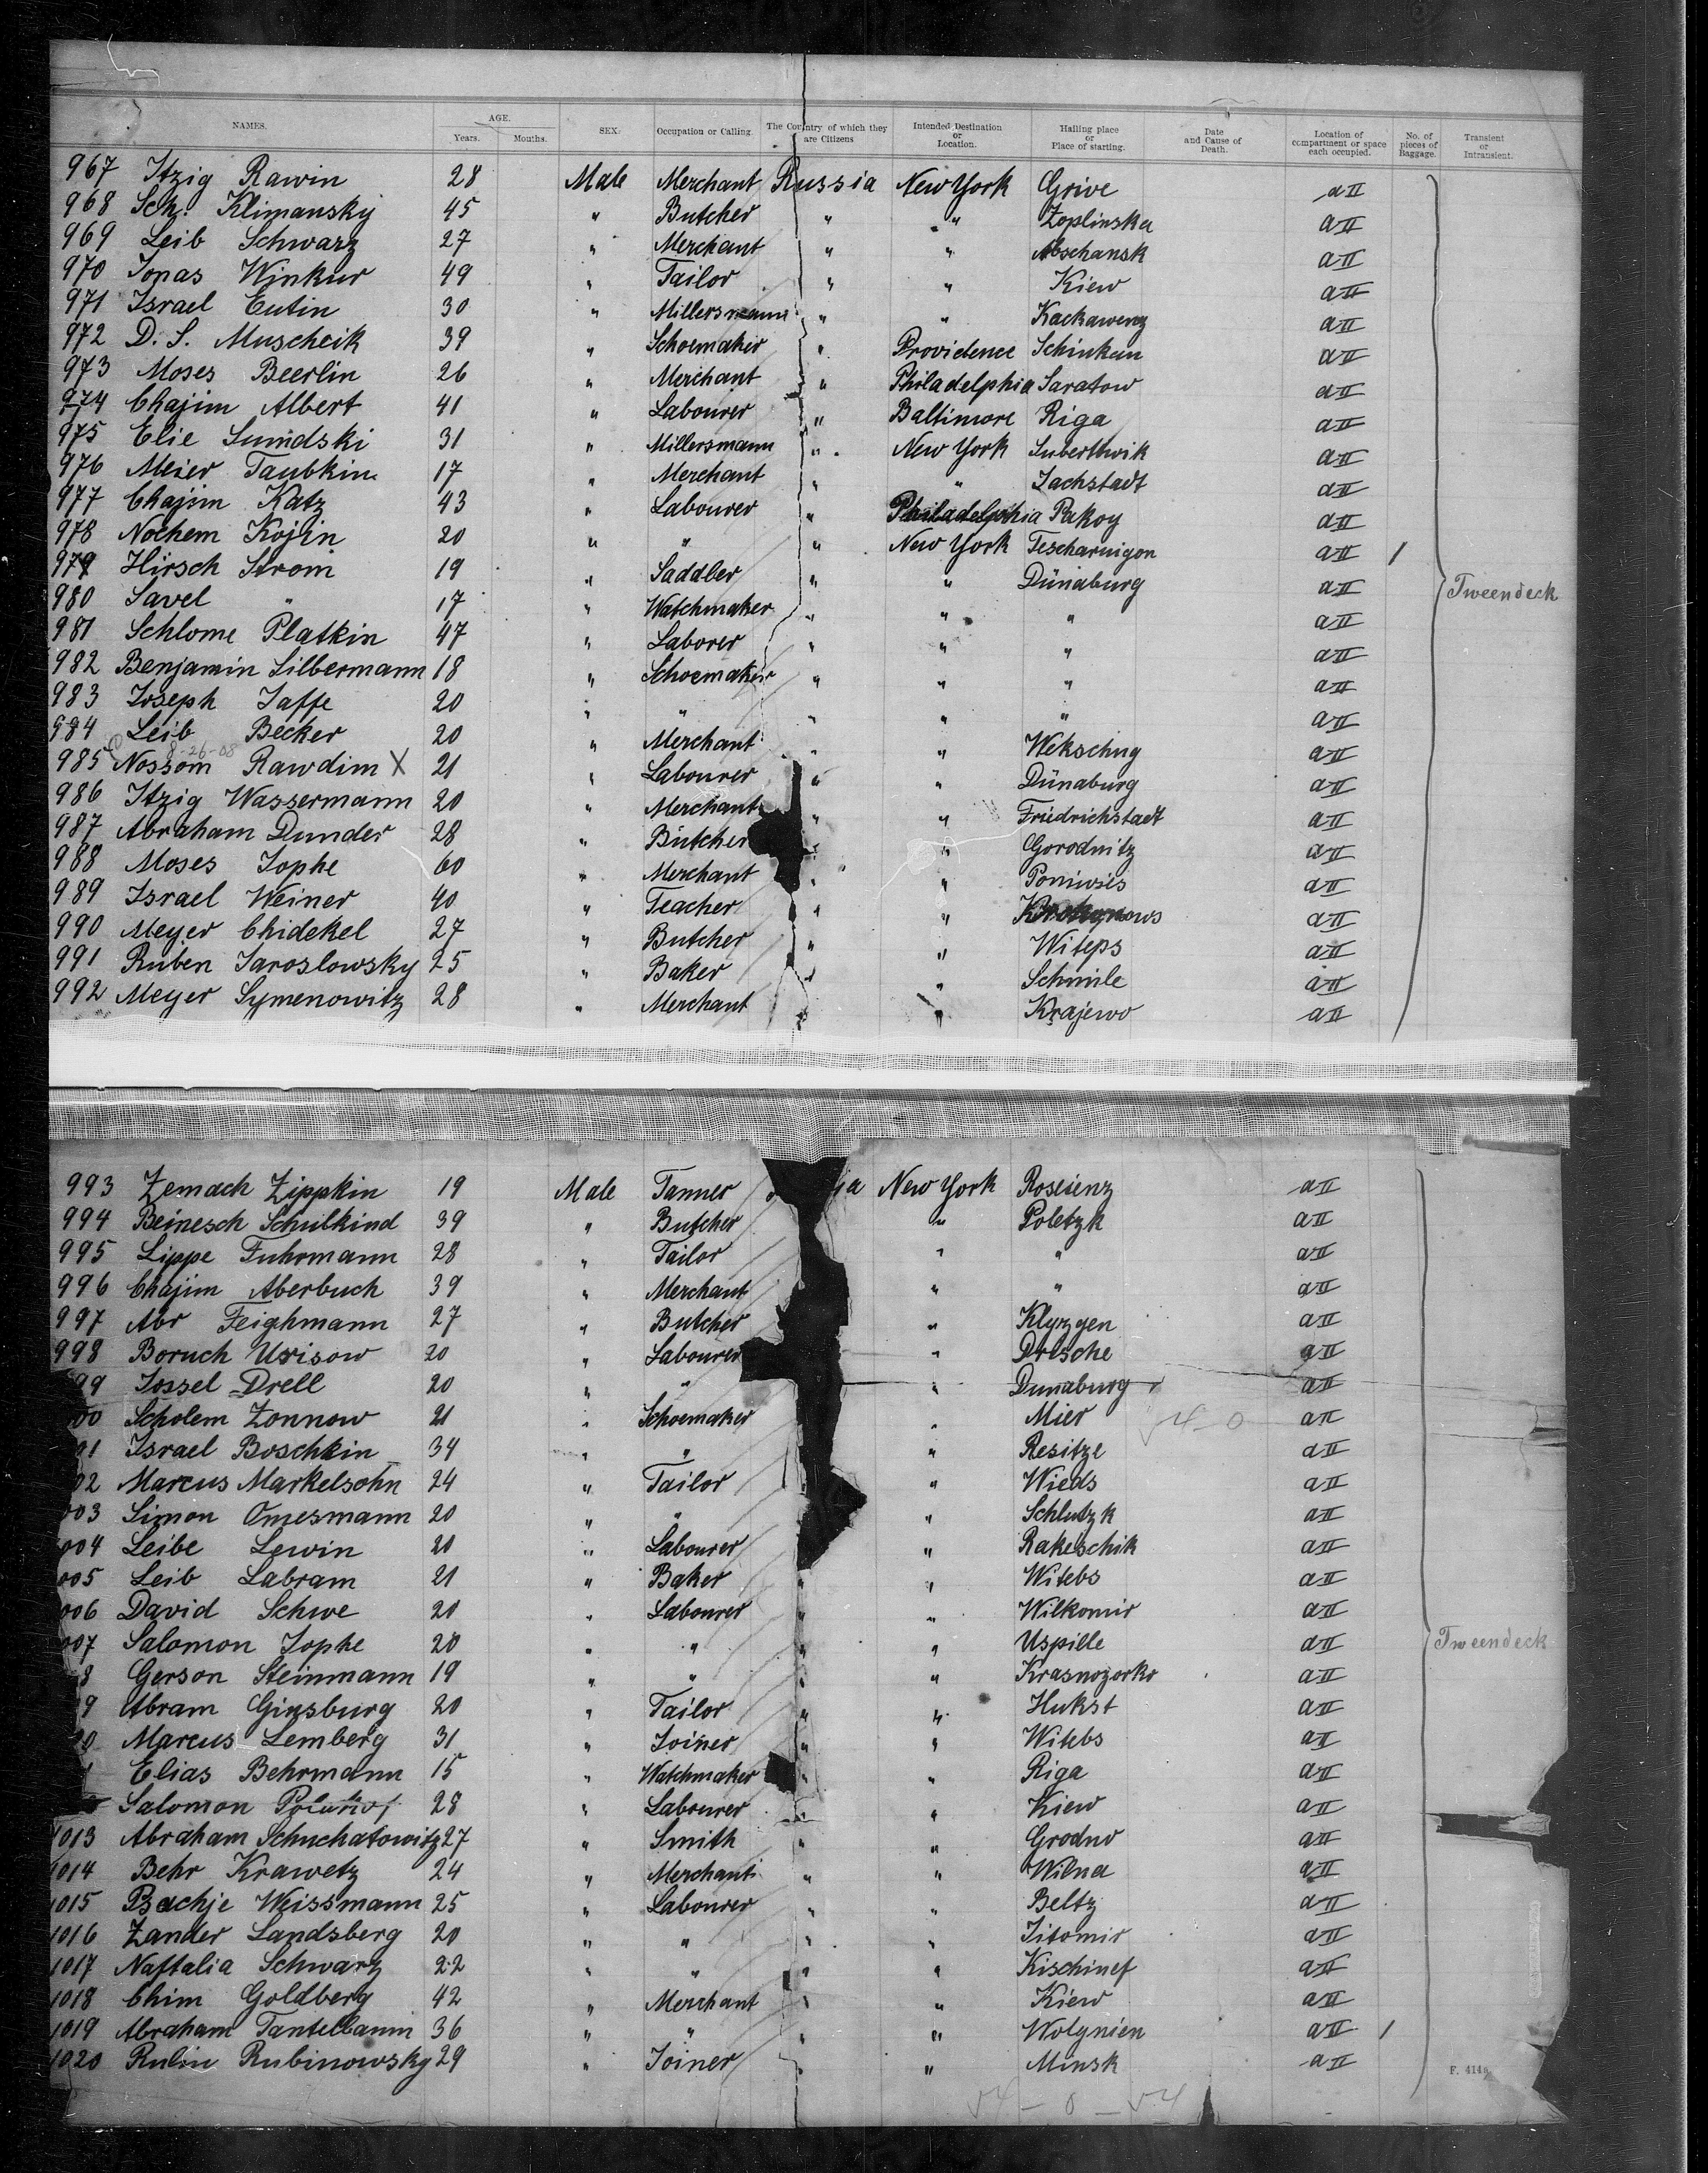 NAMES. AGE. Years. Months. SEX. Occupation or Calling. The Country of which they are Citizens Intended Destination or Location. Hailing place or Place of starting. Date and Cause of Death. Location of compartment or space each occupied. No. of pieces of Baggage. Transient or Intransient.
967 Itzig Rawin 28 Male Merchant Russia New York Grive a II
968 Sch. Klimansky 45 " Butcher " " Zoplinska a II
969 Leib Schwarz 27 " Merchant " " Abschansk a II
970 Jonas Winkur 49 " Tailor " " Kiew a II
971 Israel Eutin 30 " Millersmann " " Kackawenz a II
972 D. S. Muscheik 39 " Schoemaker " Providence Schinkun a II
973 Moses Beerlin 26 " Merchant " Philadelphia Saratow a II
974 Chajim Albert 41 " Labourer " Baltimore Riga a II
975 Elie Sumdski 31 " Millersmann " New York Suberthwik a II
976 Meier Taubkin 17 " Merchant " " Jachstadt a II
977 Chajim Katz 43 " Labourer " Philadelphia Rakoy a II
978 Nochem Kojin 20 " " " New York Tescharnigon a II 1
979 Hirsch Strom 19 " Saddler " " Dünaburg a II Tweendeck
980 Savel " 17 " Watchmaker " " " a II
981 Schlome Platkin 47 " Laborer " " " a II
982 Benjamin Silbermann 18 " Schoemaker " " " a II
983 Joseph Jaffe 20 " " " " " a II
984 Leib Becker 20 " Merchant " " Weksching a II
8-26-08
985 Nossom Rawdim X 21 " Labourer " " Dünaburg a II
986 Itzig Wassermann 20 " Merchant " " Friedrichstadt a II
987 Abraham Dunder 28 " Butcher " " Gorodnitz a II
988 Moses Jophe 60 " Merchant " " Poniwies a II
989 Israel Weiner 40 " Teacher " " a II
990 Meyer Chidekel 27 " Butcher " " Witeps a II
991 Ruben Jaroslowsky 25 " Baker " " Schmile a II
992 Meyer Symenowitz 28 " Merchant " " Krajewo a II
993 Zemach Zippkin 19 Male Tanner New York Roseienz a II
994 Beinesch Schulkind 39 " Butcher " Poletzk a II
995 Lippe Fuhrmann 28 " Tailor " " a II
996 Chajim Aberbuch 39 " Merchant " " a II
997 Abr Feighmann 27 " Butcher " Klyzgen a II
998 Boruch Urisow 20 " Labourer " Drische a II
99 Jossel Drell 20 " " " Dunaburg a II
00 Scholem Zonnow 21 " Schoemaker " Mier a II
01 Israel Boschkin 34 " " " Resitze a II
02 Marcus Markelsohn 24 " Tailor " Wieds a II
003 Simon Omesmann 20 " " " Schlutzk a II
004 Leibe Lewin 20 " Labourer " Rakeschik a II
005 Leib Labram 21 " Baker " " Witebs a II
006 David Schwe 20 " Labourer " " Wilkomir a II
007 Salomon Jophe 20 " " " " Uspille a II Tweendeck
8 Gerson Steinmann 19 " " " " Krasnogorka a II
9 Abram Ginsburg 20 " Tailor " " Hukst a II
0 Marcus Lemberg 31 " Joiner " " Witebs a II
Elias Behrmann 15 " Watchmaker " " Riga a II
Salomon 28 " Labourer " " Kiew a II
1013 Abraham Schuchatowitz 27 " Smith " " Grodno a II
1014 Behr Krawetz 24 " Merchant " " Wilna a II
1015 Bachje Weissmann 25 " Labourer " " Beltz a II
1016 Zander Landsberg 20 " " " " Jitomir a II
1017 Naftalia Schwarz 22 " " " " Kischinef a II
1018 Chim Goldberg 42 " Merchant " " Kiew a II
1019 Abraham Tantelbaum 36 " " " " Wolynien a II 1
1020 Rulin Rubinowsky 29 " Joiner " " Minsk a II
F. 414
54 - 0 - 54